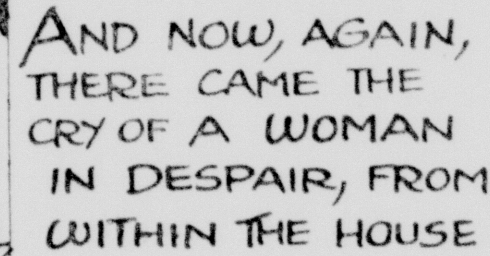 AND NOW, AGAIN,
THERE CAME THE
CRY OF A WOMAN
IN DESPAIR, FROM
WITHIN THE HOUSE